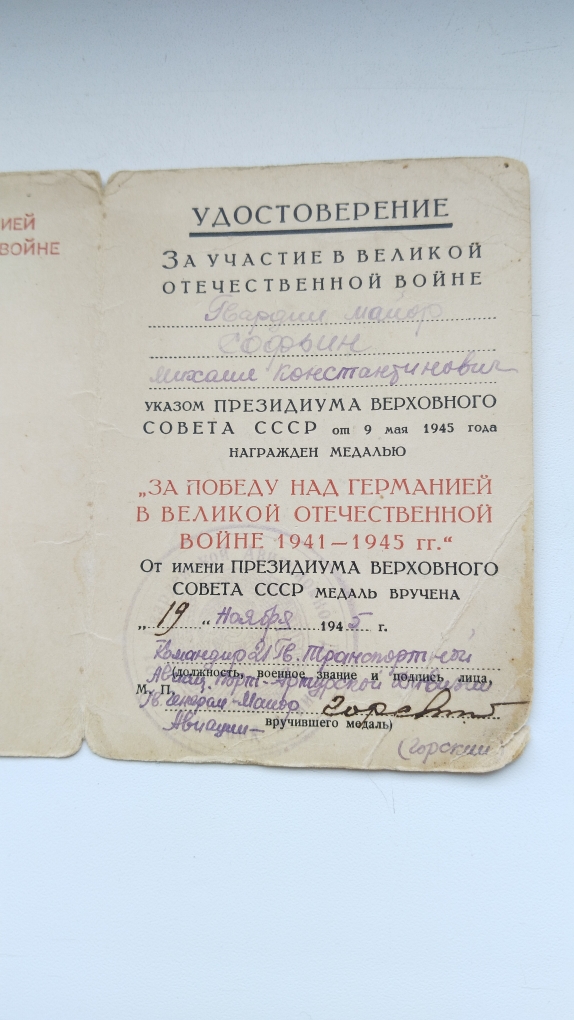 ИЕЙ
ВОЙНЕ
УДОСТОВЕРЕНИЕ
ЗА УЧАСТИЕ В ВЕЛИКОЙ
ОТЕЧЕСТВЕННОЙ ВОЙНЕ
Гвардии майор
Софьин
Михаил Константинович
УКАЗОМ ПРЕЗИДИУМА ВЕРХОВНОГО
СОВЕТА СССР от 9 мая 1945 года
НАГРАЖДЕН МЕДАЛЬЮ
„ЗА ПОБЕДУ НАД ГЕРМАНИЕЙ
В ВЕЛИКОЙ ОТЕЧЕСТВЕННОЙ
ВОЙНЕ 1941—1945 гг.“
От имени ПРЕЗИДИУМА ВЕРХОВНОГО
СОВЕТА СССР МЕДАЛЬ ВРУЧЕНА
„19“ Ноября 1945 г.
Командир 21 Гв. Транспортной
Авиац. Порт-Артурской Дивизии
(должность, военное звание и подпись лица,
М. П.
Гв. Генерал-Майор
Авиации-
вручившего медаль)
(Горский